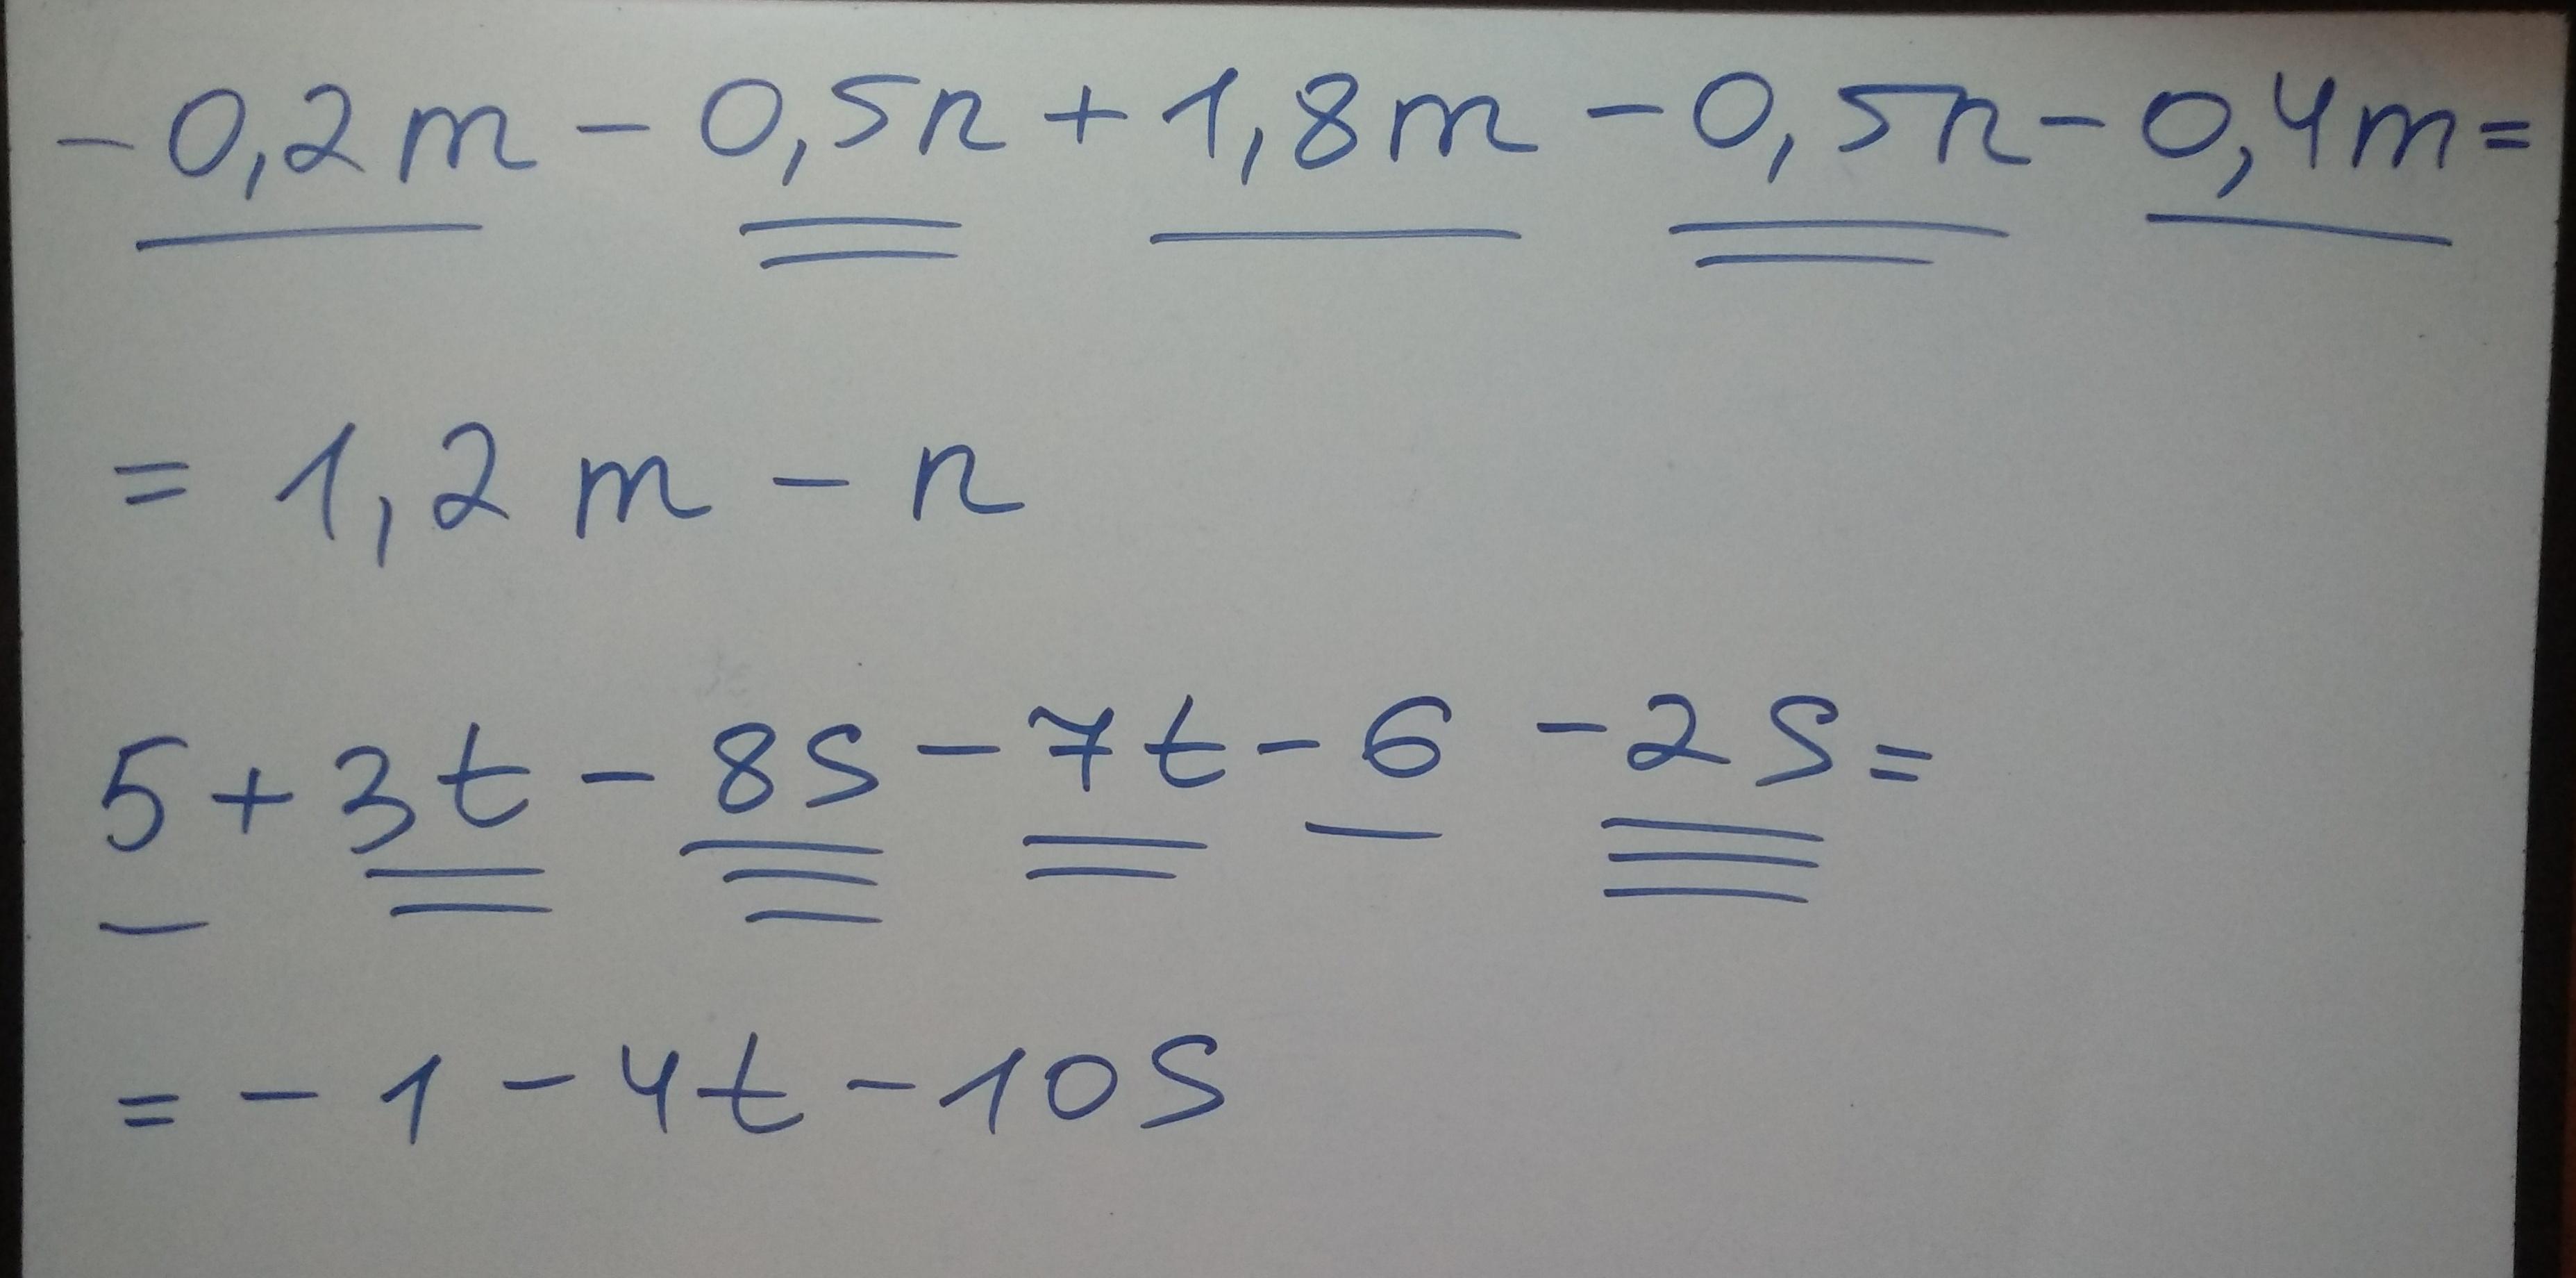 - 0,2m - 0,5n + 1,8m - 0,5n - 0,4m =
= 1,2m - n
5 + 3t - 8s - 7t - 6 - 2s =
= - 1 - 4t - 10s